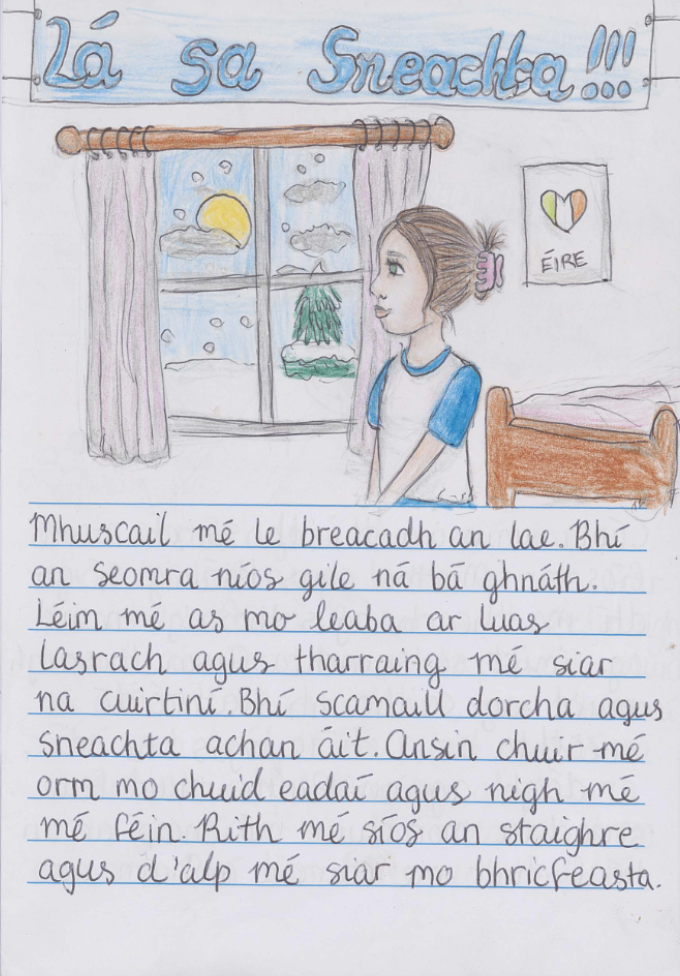 Lá sa Sneachta!!!
ÉIRE
Mhuscail mé le breacadh an lae. Bhí
an seomra níos gile ná bá ghnáth.
Léim mé as mo leaba ar luas
lasrach agus tharraing mé siar
na cuirtíní. Bhí scamaill dorcha agus
sneachta achan áit. Ansin chuir mé
orm mo chuid eadaí agus nigh mé
mé féin. Rith mé síos an staighre
agus d'alp mé siar mo bhricfeasta.